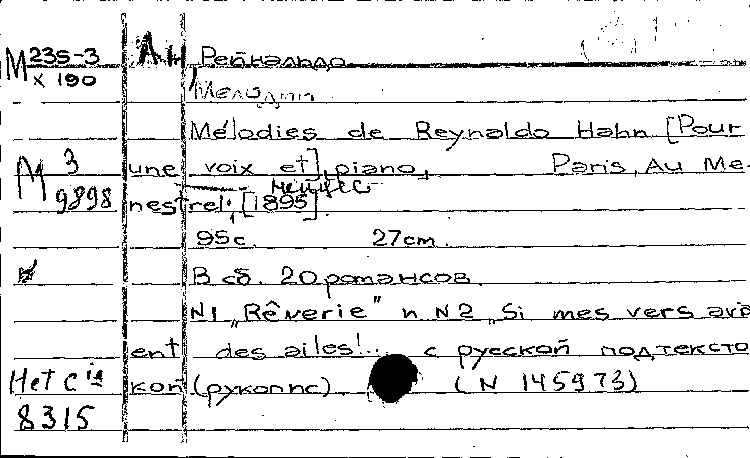 М 235-3
х 190
Ан Рейнальдо
Мелодии
Mélodies de Reynaldo Hahn [Pour
М 3
9898
une voix et] piano, Paris, Au Me-
nestrel, [1895].
95с. 27cm.
В сб. 20 романсов.
N1 „Rêverie" и N2 „Si mes vers avai
ent des ailes!.. с русской подтексто
Нет с ia
кой (рукопис) (N 145973)
8315